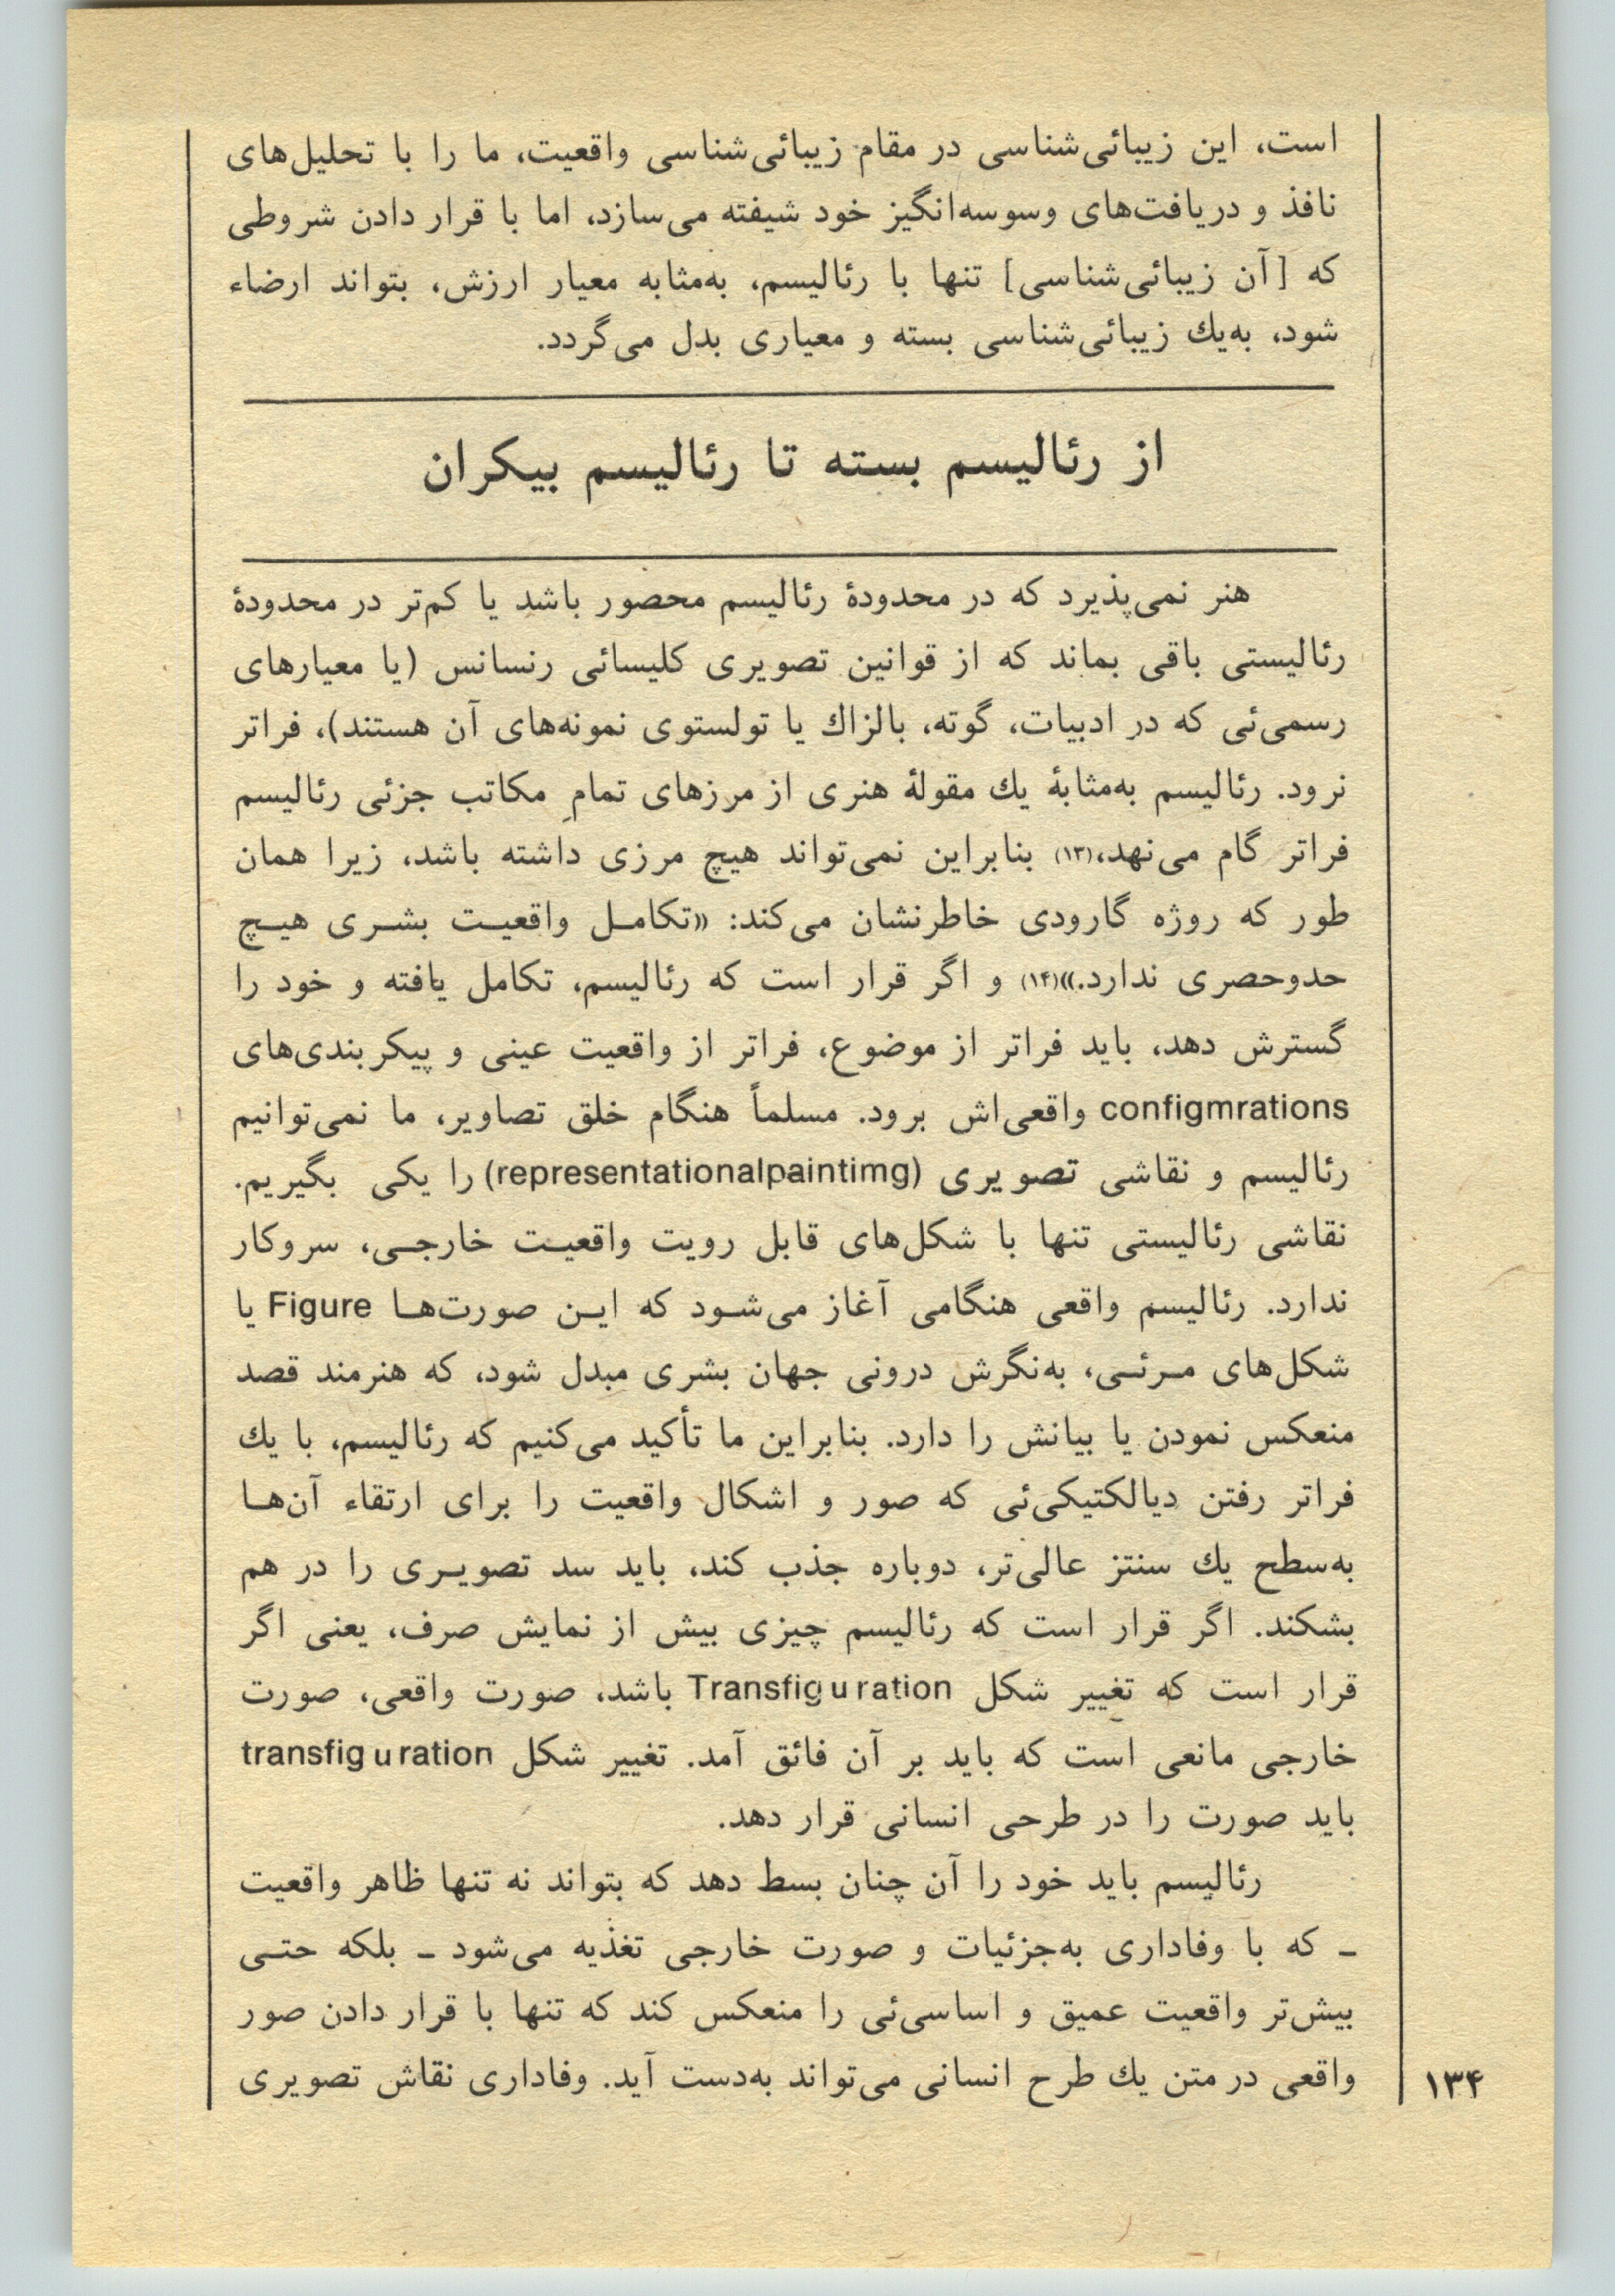 است، این زیبائی‌شناسی در مقام زیبائی‌شناسی واقعیت، ما را با تحلیل‌های
نافذ و دریافت‌های وسوسه‌انگیز خود شیفته می‌سازد، اما با قرار دادن شروطی
که [آن زیبائی‌شناسی] تنها با رئالیسم، به‌مثابه معیار ارزش، بتواند ارضاء
شود، به‌یك زیبائی‌شناسی بسته و معیاری بدل می‌گردد.
از رئالیسم بسته تا رئالیسم بیکران
هنر نمی‌پذیرد که در محدودهٔ رئالیسم محصور باشد یا کم‌تر در محدودهٔ
رئالیستی باقی بماند که از قوانین تصویری کلیسائی رنسانس (یا معیارهای
رسمی‌ئی که در ادبیات، گوته، بالزاك یا تولستوی نمونه‌های آن هستند)، فراتر
نرود. رئالیسم به‌مثابهٔ یك مقولهٔ هنری از مرزهای تمامِ مکاتب جزئی رئالیسم
فراتر گام می‌نهد،(۱۳) بنابراین نمی‌تواند هیچ مرزی داشته باشد، زیرا همان
طور که روژه گارودی خاطرنشان می‌کند: «تکامـل واقعیـت بشـری هیـچ
حدوحصری ندارد.»(۱۴) و اگر قرار است که رئالیسم، تکامل یافته و خود را
گسترش دهد، باید فراتر از موضوع، فراتر از واقعیت عینی و پیکربندی‌های
configmrations واقعی‌اش برود. مسلماً هنگام خلق تصاویر، ما نمی‌توانیم
رئالیسم و نقاشی تصویری (representationalpaintimg) را یکی بگیریم.
نقاشی رئالیستی تنها با شکل‌های قابل رویت واقعیـت خارجـی، سروکار
ندارد. رئالیسم واقعی هنگامی آغاز می‌شـود که ایـن صورت‌هـا Figure یا
شکل‌های مـرئـی، به‌نگرش درونی جهان بشری مبدل شود، که هنرمند قصد
منعکس نمودن یا بیانش را دارد. بنابراین ما تأکید می‌کنیم که رئالیسم، با یك
فراتر رفتن دیالکتیکی‌ئی که صور و اشکال واقعیت را برای ارتقاء آن‌هـا
به‌سطح یك سنتز عالی‌تر، دوباره جذب کند، باید سد تصویـری را در هم
بشکند. اگر قرار است که رئالیسم چیزی بیش از نمایش صرف، یعنی اگر
قرار است که تغییر شکل Transfiguration باشد، صورت واقعی، صورت
خارجی مانعی است که باید بر آن فائق آمد. تغییر شکل transfiguration
باید صورت را در طرحی انسانی قرار دهد.
رئالیسم باید خود را آن چنان بسط دهد که بتواند نه تنها ظاهر واقعیت
ـ که با وفاداری به‌جزئیات و صورت خارجی تغذیه می‌شود ـ بلکه حتـی
بیش‌تر واقعیت عمیق و اساسی‌ئی را منعکس کند که تنها با قرار دادن صور
واقعی در متن یك طرح انسانی می‌تواند به‌دست آید. وفاداری نقاش تصویری
۱۳۴